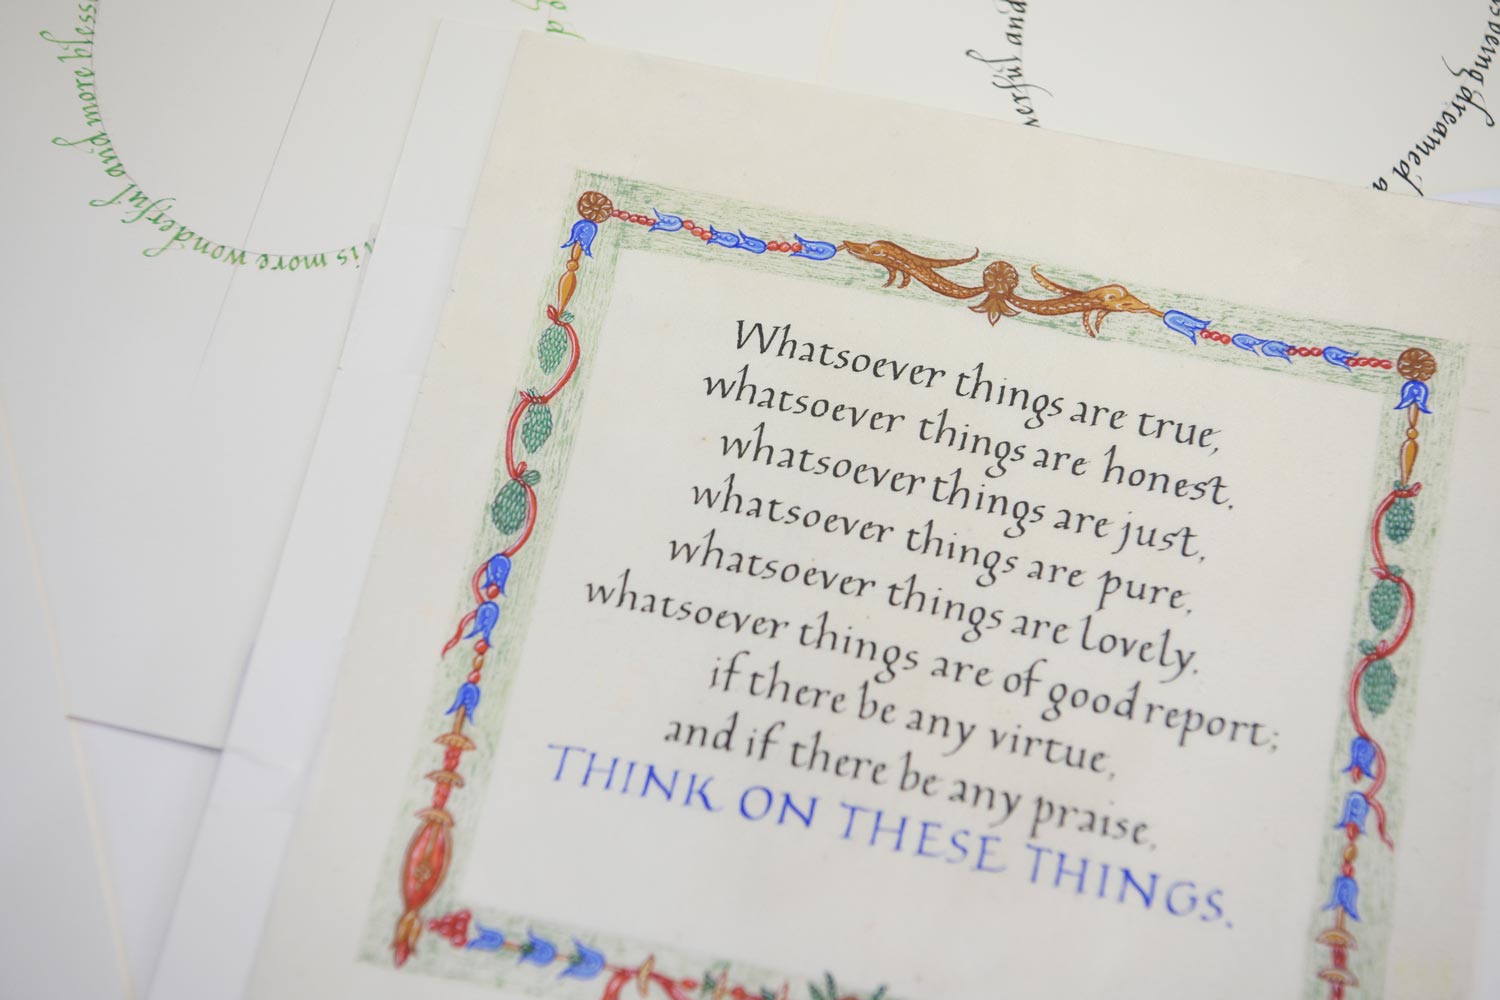 and more bless
is more wonderful
erful and
s being dreamed
Whatsoever things are true,
whatsoever things are honest,
whatsoever things are just,
whatsoever things are pure,
whatsoever things are lovely,
whatsoever things are of good report;
if there be any virtue,
and if there be any praise,
THINK ON THESE THINGS.